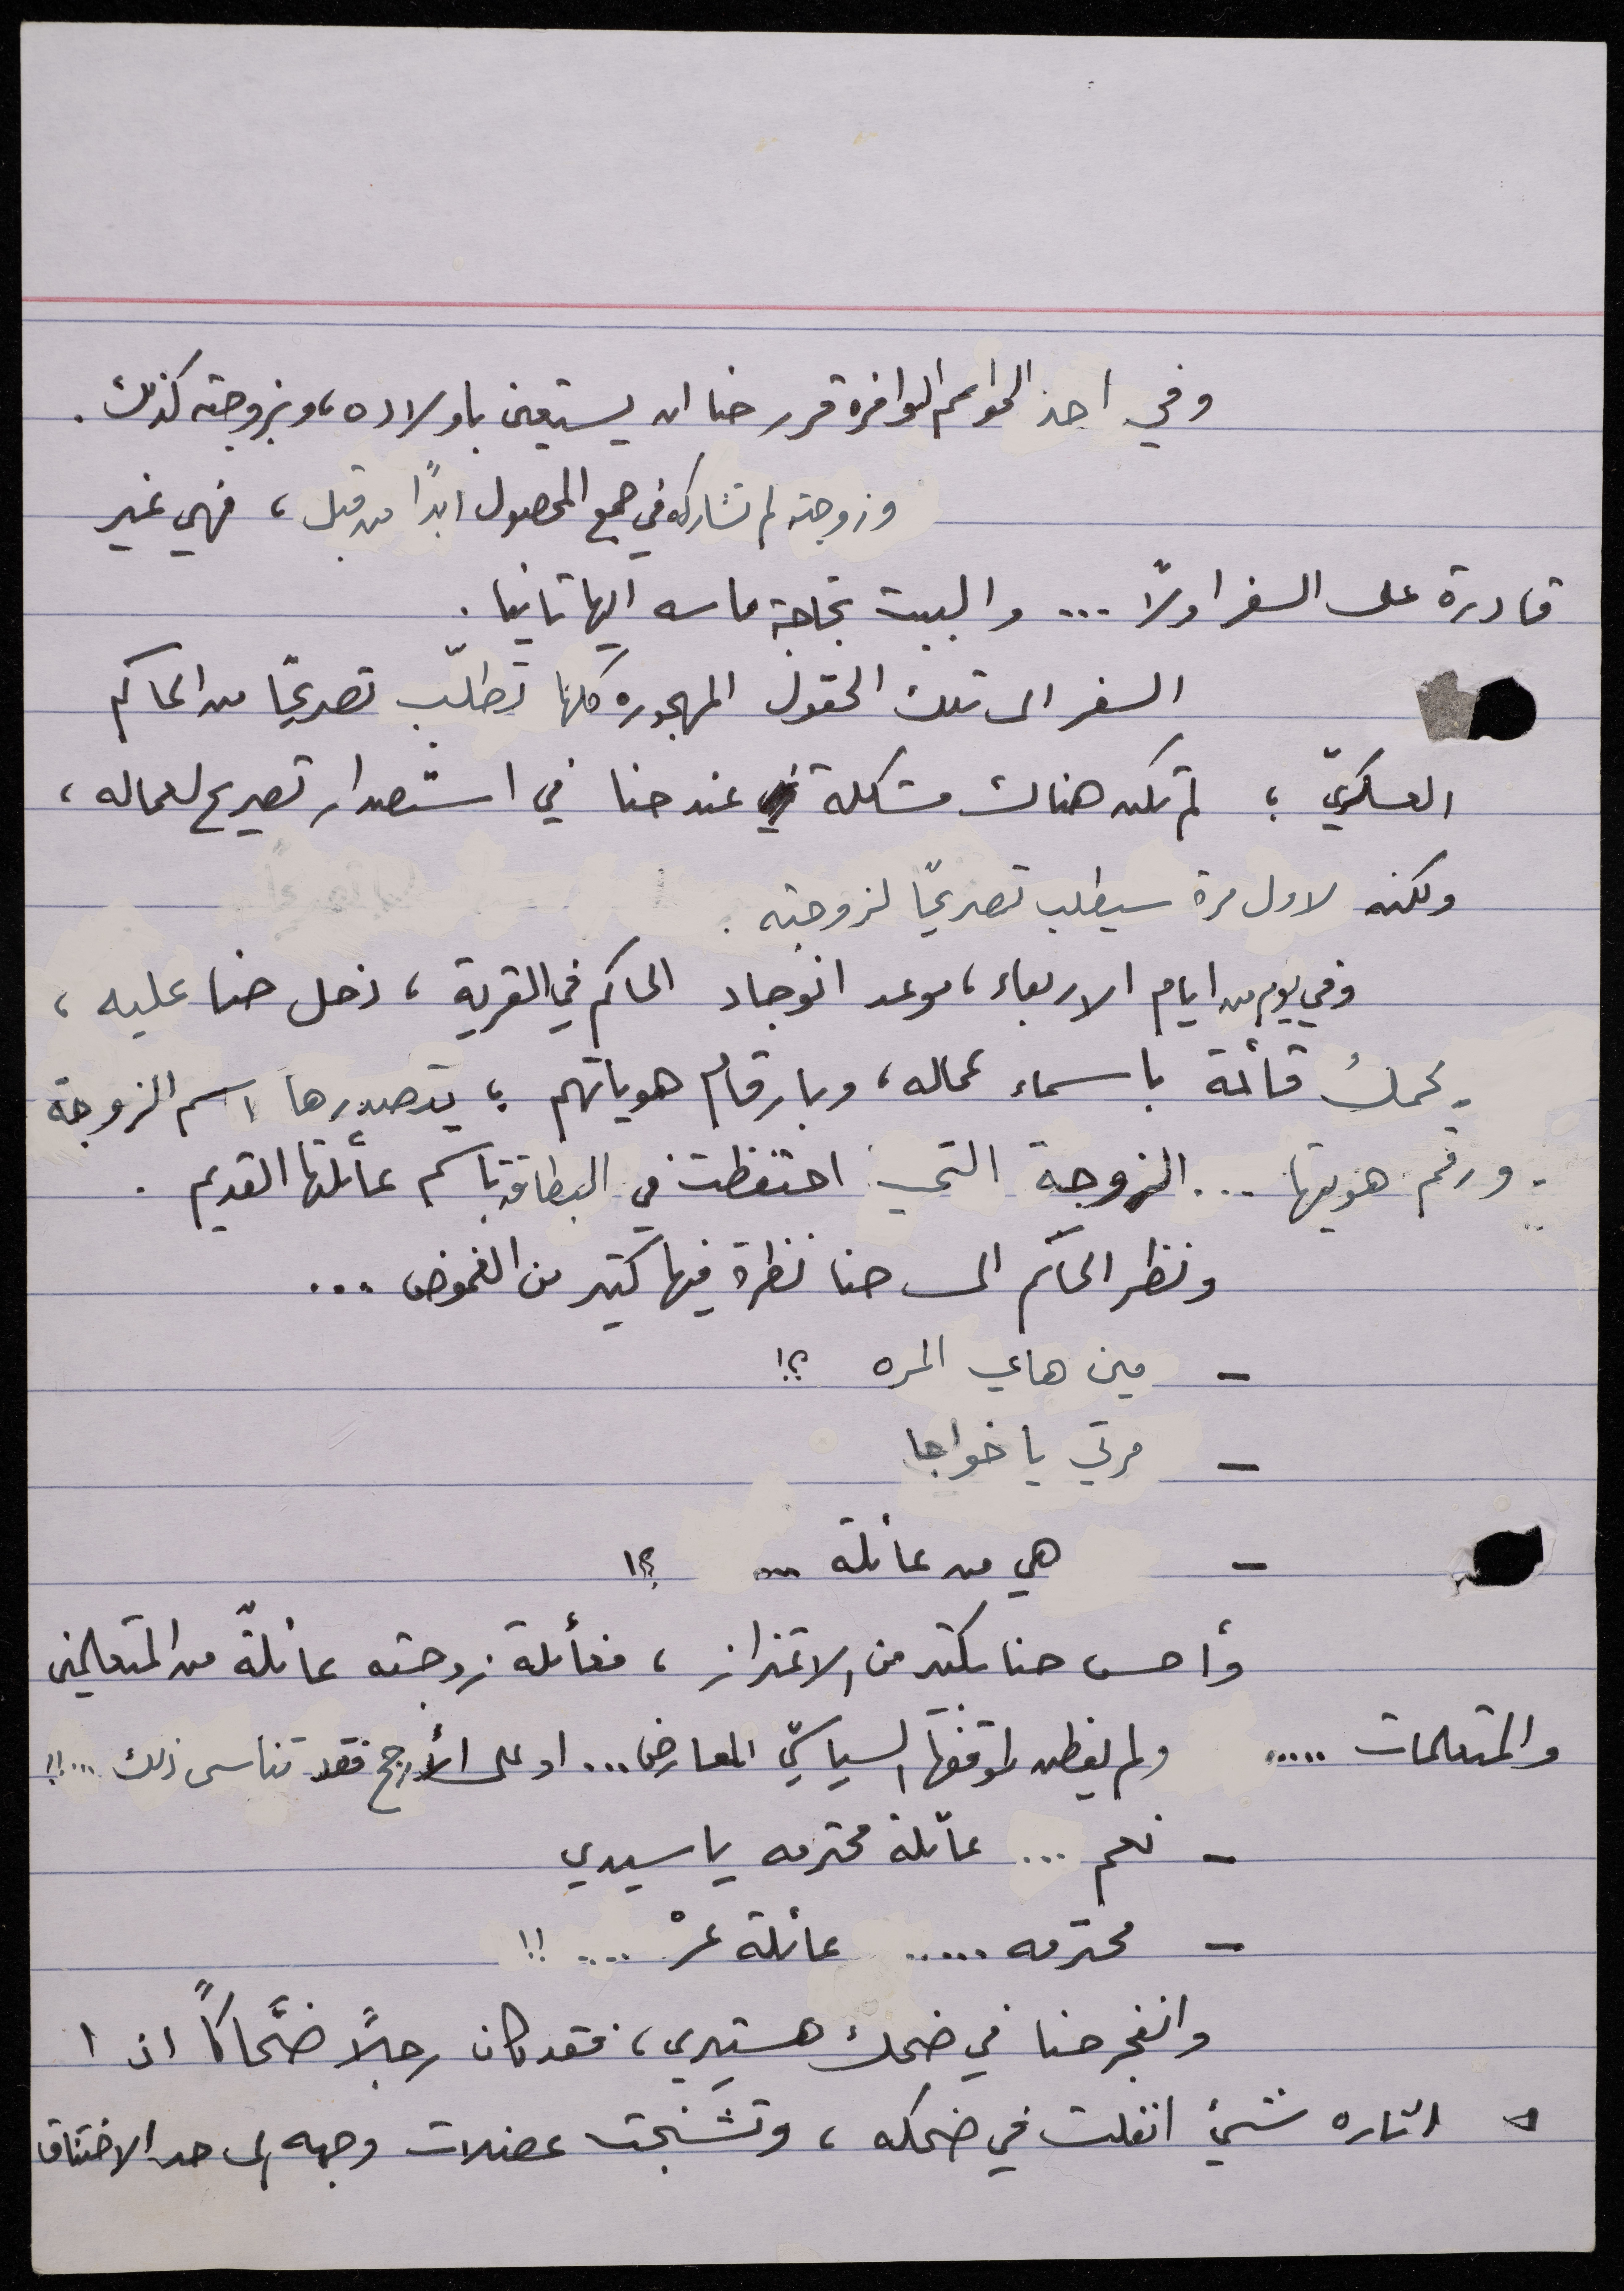 وفي احد المواسم الوافرة قرر حنا ان يستعين باولاده، وبزوجته كذلك .
وزوجته لم تشاركه في جمع المحصول ابدًا من قبل ، فهي غير
قادرة على السفر اولًا ... والبيت بحاجة ماسه اليها ثانيا .
السفر الى تلك الحقول المهجوره كلها تطلّب تصريحًا من الحاكم
العسكريّ ؛ لم تكن هناك مشكلة عند حنا في استصدار تصريح لعماله ،
ولكنه لاول مرة سيطلب تصريحًا لزوجته .
وفي يوم من ايام الاربعاء ، موعد انوجاد الحاكم في القرية ، دخل حنا عليه ،
يحمل قائمة باسماء عماله ، وبارقام هوياتهم ؛ يتصدرها اسم الزوجة
. ورقم هويتها ... الزوجة التي احتفظت في البطاقة باسم عائلتها القديم .
ونظر الحاكم الى حنا نظرة فيها كثير من الغموض ...
- مين هاي المره ؟!
- مرتي يا خواجا
- هي من عائلة ... ؟!
وأحس حنا بكثير من الاعتزاز ، فعائلة زوجته عائلةٌ من المتعلمين
والمتعلمات ..... ولم يفطن لموقفها السياسيّ المعارض ... او على الأرجح فقد تناسى ذلك ...!!
- نعم ... عائلة محترمه يا سيدي
- محترمه ..... عائلة عرْ .... !!
وانفجر حنا في ضحك هستيري ، فقد كان رجلًا ضحّاكًا اذا
اثاره شيئ انفلت في ضحكه ، وتشنجت عضلات وجهه الى حد الاختناق